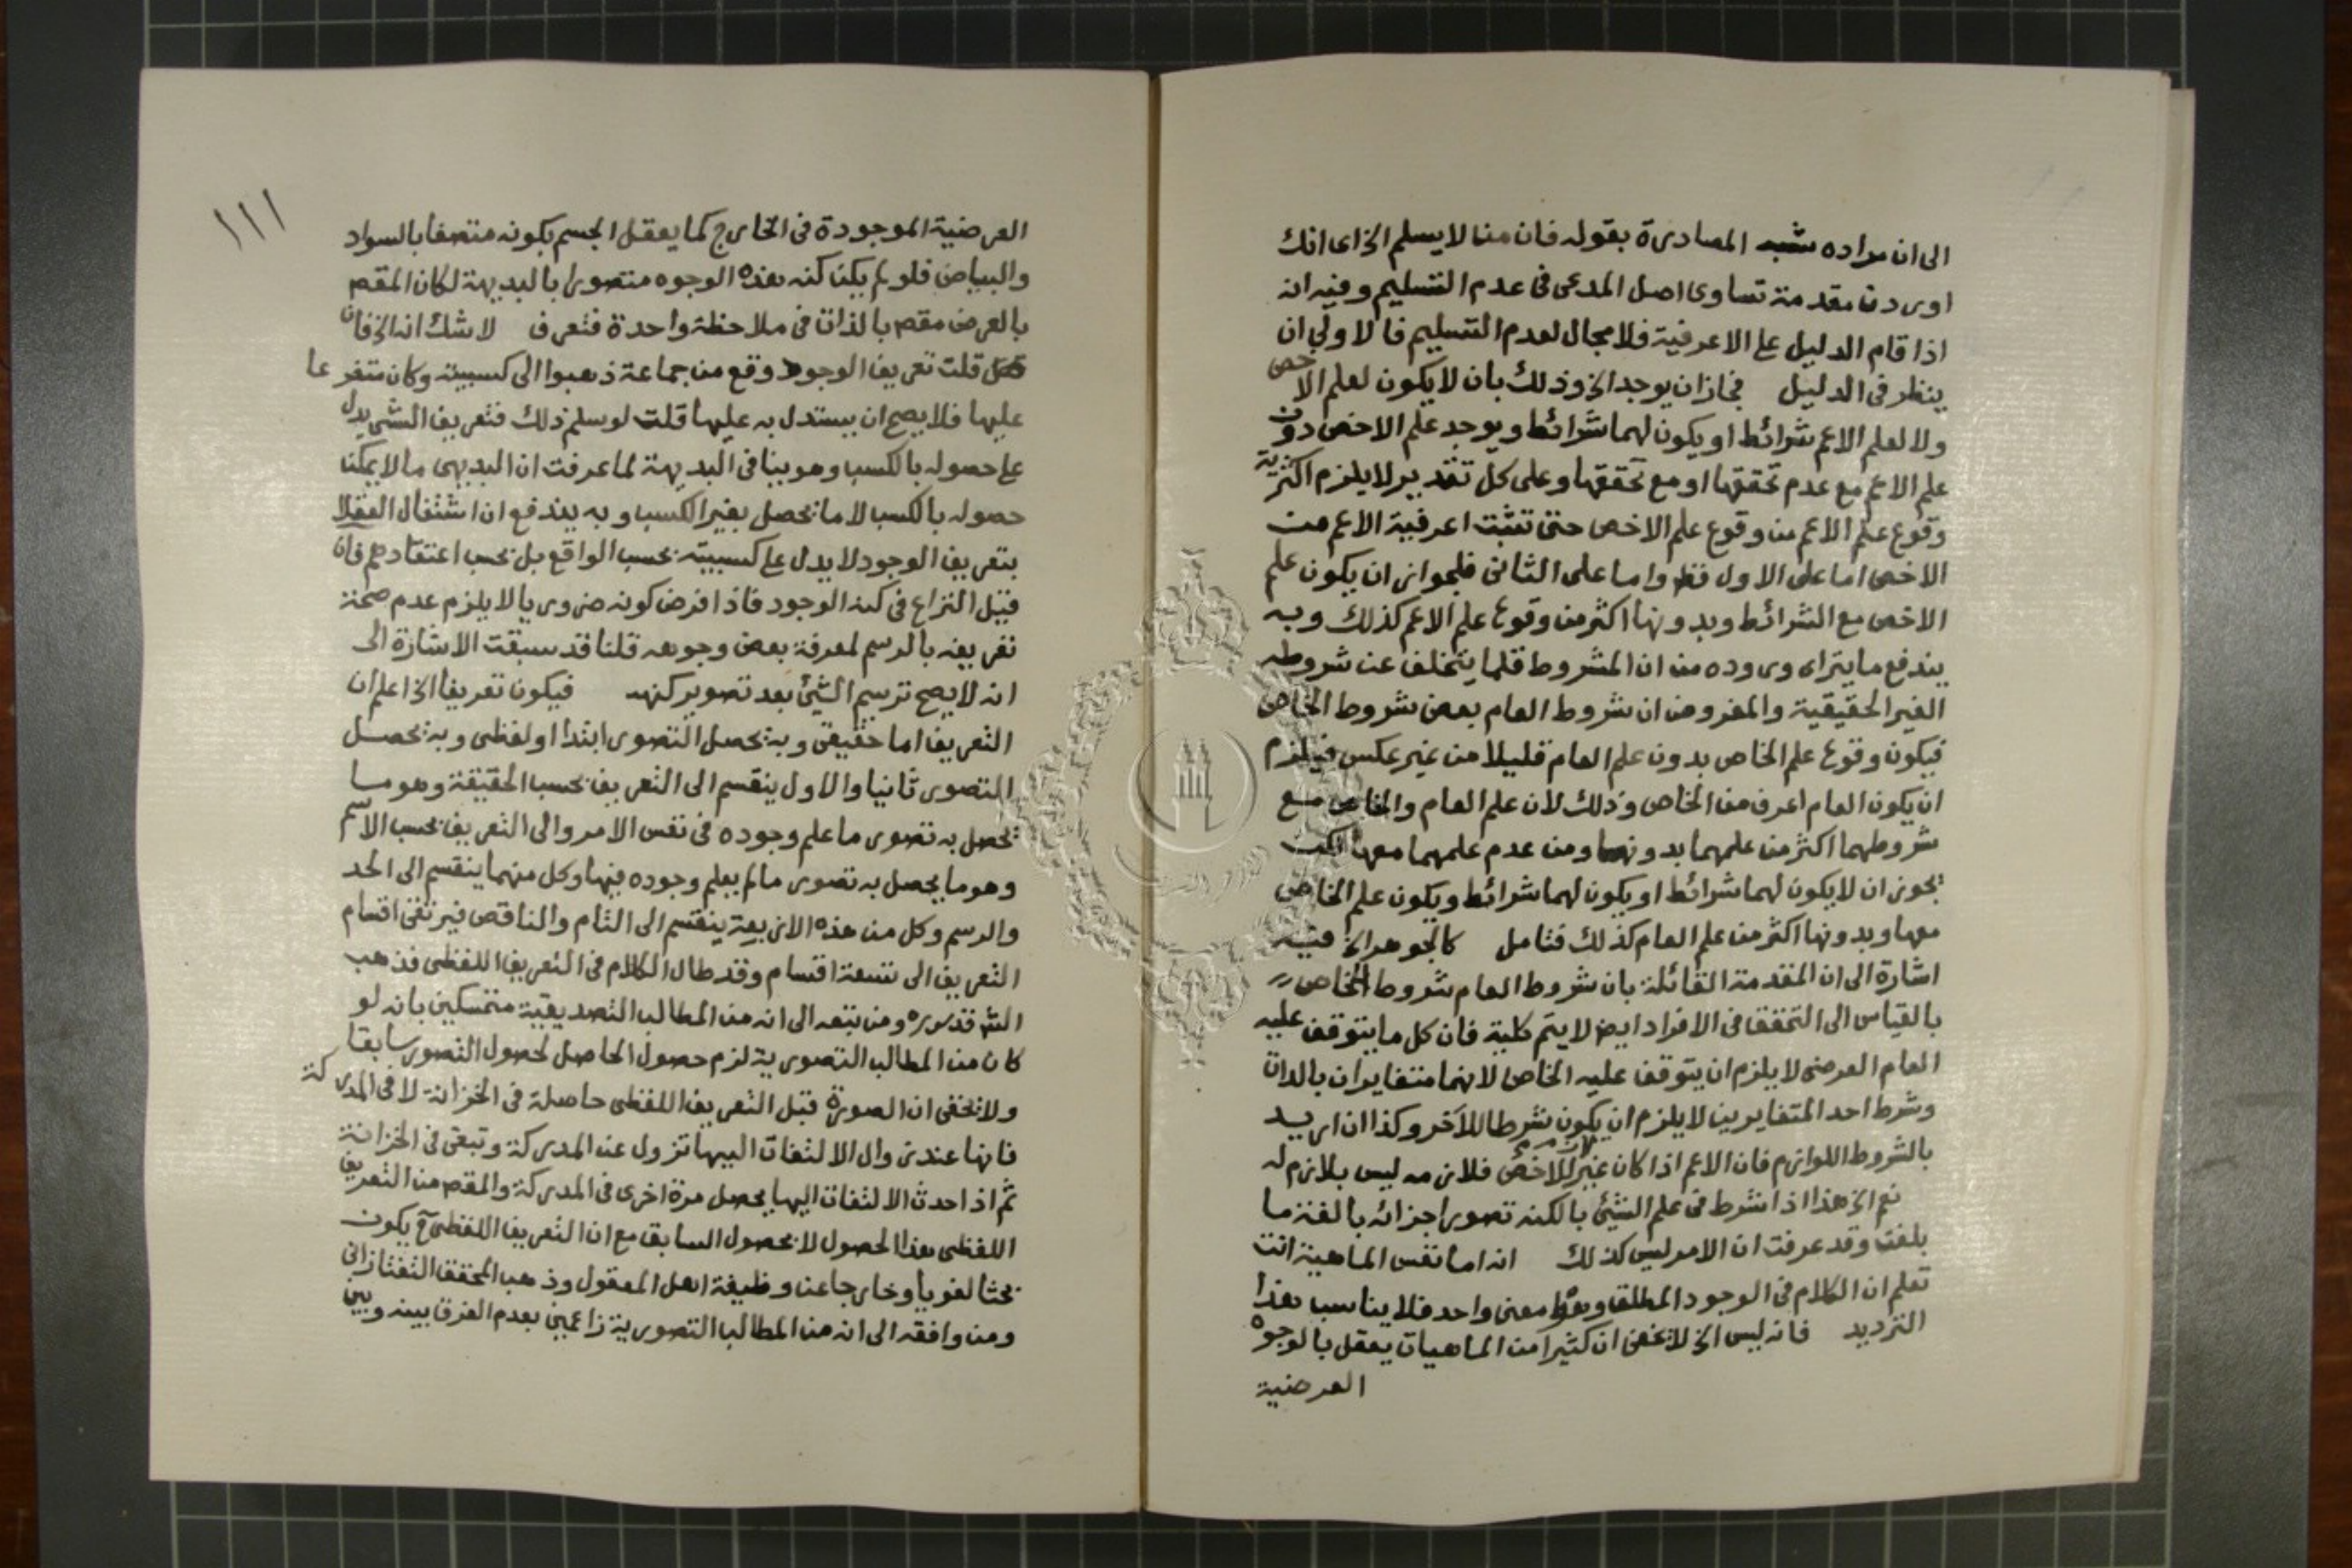 الى ان مراده شبه المصادرة بقوله فان منا لا يسلم الخ اى انك
اوردت مقدمة تساوى اصل المدعى فى عدم التسليم وفيه انه
اذا قام الدليل على الاعرفية فلا مجال لعدم التسليم فالاولى ان
ينظر فى الدليل فجاز ان يوجد الخ وذلك بان لا يكون لعلم الاخص
ولا لعلم الاعم شرائط او يكون لهما شرائط ويوجد علم الاخص دون
علم الاعم مع عدم تحققها او مع تحققها وعلى كل تقدير لا يلزم اكثرية
وقوع علم الاعم من وقوع علم الاخص حتى تثبت اعرفية الاعم من
الاخص اما على الاول فظ واما على الثانى فلجواز ان يكون علم
الاخص مع الشرائط وبدونها اكثر من وقوع علم الاعم كذلك وبه
يندفع ما يتراى وروده من ان المشروط قلما يتخلف عن شروطه
الغير الحقيقية والمفروض ان شروط العام بعض شروط الخاص
فيكون وقوع علم الخاص بدون علم العام قليلا من غير عكس فيلزم
ان يكون العام اعرف من الخاص وذلك لان علم العام والخاص مع
شروطهما اكثر من علمهما بدونها ومن عدم علمهما معها لكن
يجوز ان لا يكون لهما شرائط او يكون لهما شرائط ويكون علم الخاص
معها وبدونها اكثر من علم العام كذلك فتامل كالجوهر الخ فيه
اشارة الى ان المقدمة القائلة بان شروط العام شروط الخاص
بالقياس الى التحقق فى الافراد ايض لا يتم كلية فان كل ما يتوقف عليه
العام العرضى لا يلزم ان يتوقف عليه الخاص لانهما متغايران بالذات
وشرط احد المتغايرين لا يلزم ان يكون شرطا للآخر وكذا ان اريد
بالشروط اللوازم فان الاعم اذا كان غير لازم للاخص فلازمه ليس بلازم له
نعم الخ هذا اذا شرط فى علم الشئ بالكنه تصور اجزائه بالغة ما
بلغت وقد عرفت ان الامر ليس كذلك انه اما نفس الماهية انت
تعلم ان الكلام فى الوجود المطلق وهو معنى واحد فلا يناسب هذا
الترديد فانه ليس الخ لا يخفى ان كثيرا من الماهيات يعقل بالوجوه
العرضية
١١١
العرضية الموجودة فى الخارج كما يعقل الجسم بكونه متصفا بالسواد
والبياض فلو لم يكن كنه هذه الوجوه متصورا بالبديهة لكان المقصم
بالعرض مقصم بالذات فى ملاحظة واحدة فتعرف لا شك انه الخ فان
قلت تعريف الوجود وقع من جماعة ذهبوا الى كسبيته وكان متفرعا
عليها فلا يصح ان يستدل به عليها قلت لو سلم ذلك فتعريف الشئ يدل
على حصوله بالكسب وهو ينافى البديهة لما عرفت ان البديهى ما لا يمكن
حصوله بالكسب لا ما يحصل بغير الكسب وبه يندفع ان اشتغال العقلا
بتعريف الوجود لا يدل على كسبيته بحسب الواقع بل بحسب اعتقادهم فان
قيل النزاع فى كنه الوجود فاذا فرض كونه ضروريا لا يلزم عدم صحة
تعريفه بالرسم لمعرفة بعض وجوهه قلنا قد سبقت الاشارة الى
انه لا يصح ترسيم الشئ بعد تصوير كنهه فيكون تعريفا الخ اعلم ان
التعريف اما حقيقى وبه يحصل التصور ابتدا او لفظى وبه يحصل
التصور ثانيا والاول ينقسم الى التعريف بحسب الحقيقة وهو ما
يحصل به تصور ما علم وجوده فى نفس الامر والى التعريف بحسب الاسم
وهو ما يحصل به تصور ما لم يعلم وجوده فيها وكل منهما ينقسم الى الحد
والرسم وكل من هذه الاربعة ينقسم الى التام والناقص فيرتقى اقسام
التعريف الى تسعة اقسام وقد طال الكلام فى التعريف اللفظى فذهب
الش قد سره ومن تبعه الى انه من المطالب التصديقية متمسكين بانه لو
كان من المطالب التصورية لزم حصول الحاصل لحصول التصور سابقا
ولا يخفى ان الصورة قبل التعريف اللفظى حاصلة فى الخزانة لا فى المدركة
فانها عند زوال الالتفات اليها تزول عن المدركة وتبقى فى الخزانة
ثم اذا حدث الالتفات اليها يحصل مرة اخرى فى المدركة والمقصم من التعريف
اللفظى هذا الحصول لا بحصول السابق مع ان التعريف اللفظى ح يكون
بحثا لغويا وخارجا عن وظيفة اهل المعقول وذهب المحقق التفتازانى
ومن وافقه الى انه من المطالب التصورية زاعمين بعدم الفرق بينه وبين